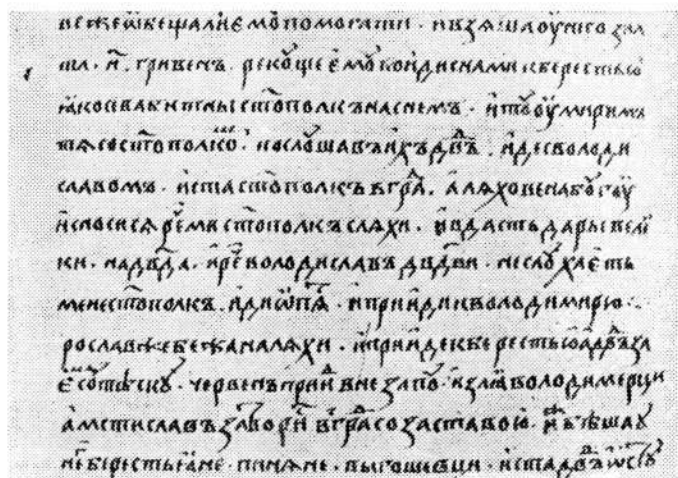 веже ѡбещалі емꙋ помогати · и взяша оу него зла
та · н҃ · гривенъ · рекꙋще емꙋ поиди с нами к берестью
ꙗко се вабит ны ст҃ополкъ на снемъ · и тꙋ оумиримъ
тѧ со ст҃ополкоⷨ · послꙋшавъ ихъ дв҃дъ иде с володи
славомъ · и ста ст҃ополкъ в граⷣ · а ляхове на бꙋгоу
и сносися рѣⷱми ст҃ополкъ с ляхи · и вдасть дары вели
ки · на дв҃да · и реⷱ володиславъ дв҃дви · не слꙋхаеть
мене ст҃ополкъ · иди ѡпѧⷮ · и прииде к володимирю ·
рославже бежа на ляхи · и прииде к берестью а дв҃дъ за
е сꙋтѣску · червенъ приⷣ внезапꙋ · и зая володимерци
а мстиславъ затвориⷭ в граⷣ с заставою · иⷤ бѣша ꙋ
неⷢ берестьяне · пиняне · выгошевци · и ста дв҃дъ ѡстꙋ